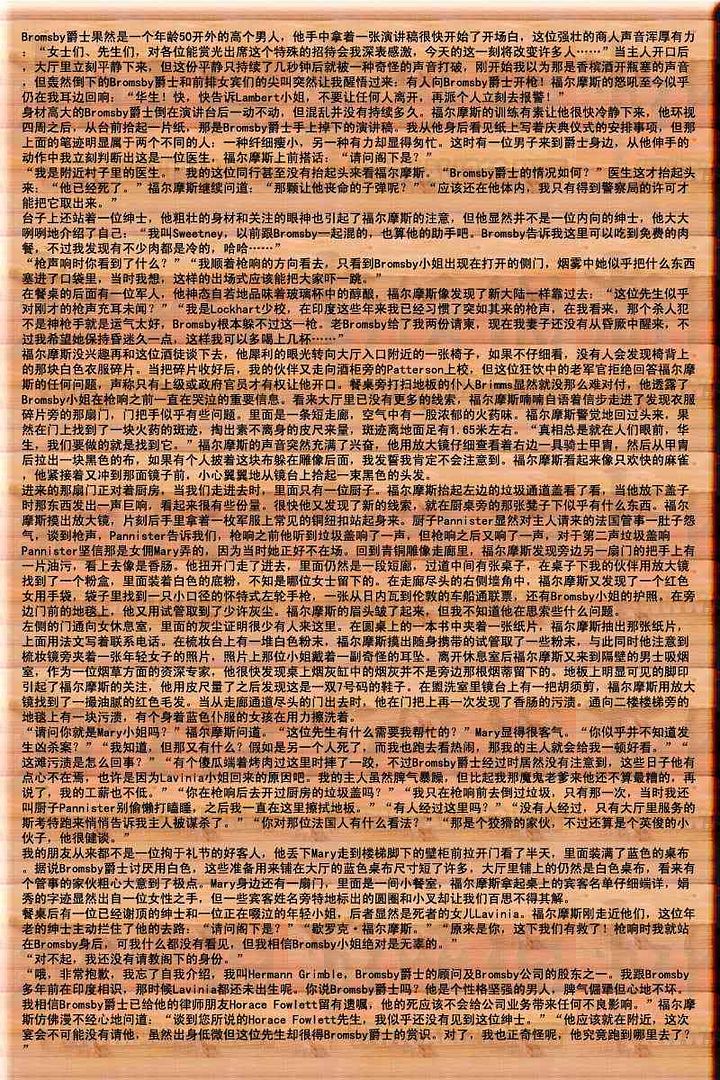 Bromsby爵士果然是一个年龄50开外的高个男人，他手中拿着一张演讲稿很快开始了开场白，这位强壮的商人声音浑厚有力
：“女士们、先生们，对各位能赏光出席这个特殊的招待会我深表感激，今天的这一刻将改变许多人……”当主人开口后
，大厅里立刻平静下来，但这份平静只持续了几秒钟后就被一种奇怪的声音打破，刚开始我以为那是香槟酒开瓶塞的声音
，但轰然倒下的Bromsby爵士和前排女宾们的尖叫突然让我醒悟过来：有人向Bromsby爵士开枪！福尔摩斯的怒吼至今似乎
仍在我耳边回响：“华生！快，快告诉Lambert小姐，不要让任何人离开，再派个人立刻去报警！”
身材高大的Bromsby爵士倒在演讲台后一动不动，但混乱并没有持续多久。福尔摩斯的训练有素让他很快冷静下来，他环视
四周之后，从台前拾起一片纸，那是Bromsby爵士手上掉下的演讲稿。我从他身后看见纸上写着庆典仪式的安排事项，但那
上面的笔迹明显属于两个不同的人：一种纤细瘦小，另一种有力却显得匆忙。这时有一位男子来到爵士身边，从他伸手的
动作中我立刻判断出这是一位医生，福尔摩斯上前搭话：“请问阁下是？”
“我是附近村子里的医生。”我的这位同行甚至没有抬起头来看福尔摩斯。“Bromsby爵士的情况如何？”医生这才抬起头
来：“他已经死了。”福尔摩斯继续问道：“那颗让他丧命的子弹呢？”“应该还在他体内，我只有得到警察局的许可才
能把它取出来。”
台子上还站着一位绅士，他粗壮的身材和关注的眼神也引起了福尔摩斯的注意，但他显然并不是一位内向的绅士，他大大
咧咧地介绍了自己：“我叫Sweetney，以前跟Bromsby一起混的，也算他的助手吧。Bromsby告诉我这里可以吃到免费的肉
餐，不过我发现有不少肉都是冷的，哈哈……”
“枪声响时你看到了什么？”“我顺着枪响的方向看去，只看到Bromsby小姐出现在打开的侧门，烟雾中她似乎把什么东西
塞进了口袋里，当时我想，这样的出场式应该能把大家吓一跳。”
在餐桌的后面有一位军人，他神态自若地品味着玻璃杯中的醇酿，福尔摩斯像发现了新大陆一样靠过去：“这位先生似乎
对刚才的枪声充耳未闻？”“我是Lockhart少校，在印度这些年来我已经习惯了突如其来的枪声，在我看来，那个杀人犯
不是神枪手就是运气太好，Bromsby根本躲不过这一枪。老Bromsby给了我两份请柬，现在我妻子还没有从昏厥中醒来，不
过我希望她保持昏迷久一点，这样我可以多喝上几杯……”
福尔摩斯没兴趣再和这位酒徒谈下去，他犀利的眼光转向大厅入口附近的一张椅子，如果不仔细看，没有人会发现椅背上
的那块白色衣服碎片。当把碎片收好后，我的伙伴又走向酒柜旁的Patterson上校，但这位狂饮中的老军官拒绝回答福尔摩
斯的任何问题，声称只有上级或政府官员才有权让他开口。餐桌旁打扫地板的仆人Brimms显然就没那么难对付，他透露了
Bromsby小姐在枪响之前一直在哭泣的重要信息。看来大厅里已没有更多的线索，福尔摩斯喃喃自语着信步走进了发现衣服
碎片旁的那扇门，门把手似乎有些问题。里面是一条短走廊，空气中有一股浓郁的火药味。福尔摩斯警觉地回过头来，果
然在门上找到了一块火药的斑迹，掏出素不离身的皮尺来量，斑迹离地面足有1.65米左右。“真相总是就在人们眼前，华
生，我们要做的就是找到它。”福尔摩斯的声音突然充满了兴奋，他用放大镜仔细查看着右边一具骑士甲胄，然后从甲胄
后拉出一块黑色的布，如果有个人披着这块布躲在雕像后面，我发誓我肯定不会注意到。福尔摩斯看起来像只欢快的麻雀
，他紧接着又冲到那面镜子前，小心翼翼地从镜台上拾起一束黑色的头发。
进来的那扇门正对着厨房，当我们走进去时，里面只有一位厨子。福尔摩斯抬起左边的垃圾通道盖看了看，当他放下盖子
时那东西发出一声巨响，看起来很有些份量。很快他又发现了新的线索，就在厨桌旁的那张凳子下似乎有什么东西。福尔
摩斯摸出放大镜，片刻后手里拿着一枚军服上常见的铜纽扣站起身来。厨子Pannister显然对主人请来的法国管事一肚子怨
气，谈到枪声，Pannister告诉我们，枪响之前他听到垃圾盖响了一声，但枪响之后又响了一声，对于第二声垃圾盖响
Pannister坚信那是女佣Mary弄的，因为当时她正好不在场。回到青铜雕像走廊里，福尔摩斯发现旁边另一扇门的把手上有
一片油污，看上去像是香肠。他扭开门走了进去，里面仍然是一段短廊，过道中间有张桌子，在桌子下我的伙伴用放大镜
找到了一个粉盒，里面装着白色的底粉，不知是哪位女士留下的。在走廊尽头的右侧墙角中，福尔摩斯又发现了一个红色
女用手袋，袋子里找到一只小口径的怀特式左轮手枪，一张从日内瓦到伦敦的车船通联票，还有Bromsby小姐的护照。在旁
边门前的地毯上，他又用试管取到了少许灰尘。福尔摩斯的眉头皱了起来，但我不知道他在思索些什么问题。
左侧的门通向女休息室，里面的灰尘证明很少有人来这里。在圆桌上的一本书中夹着一张纸片，福尔摩斯抽出那张纸片，
上面用法文写着联系电话。在梳妆台上有一堆白色粉末，福尔摩斯摸出随身携带的试管取了一些粉末，与此同时他注意到
梳妆镜旁夹着一张年轻女子的照片，照片上那位小姐戴着一副奇怪的耳坠。离开休息室后福尔摩斯又来到隔壁的男士吸烟
室，作为一位烟草方面的资深专家，他很快发现桌上烟灰缸中的烟灰并不是旁边那根烟蒂留下的。地板上明显可见的脚印
引起了福尔摩斯的关注，他用皮尺量了之后发现这是一双7号码的鞋子。在盥洗室里镜台上有一把胡须剪，福尔摩斯用放大
镜找到了一撮油腻的红色毛发。当从走廊通道尽头的门出去时，他在门把上再一次发现了香肠的污渍。通向二楼楼梯旁的
地毯上有一块污渍，有个身着蓝色仆服的女孩在用力擦洗着。
“请问你就是Mary小姐吗？”福尔摩斯问道。“这位先生有什么需要我帮忙的？”Mary显得很客气。“你似乎并不知道发
生凶杀案？”“我知道，但那又有什么？假如是另一个人死了，而我也跑去看热闹，那我的主人就会给我一顿好看。”“
这滩污渍是怎么回事？”“有个傻瓜端着烤肉过这里时摔了一跤，不过Bromsby爵士经过时居然没有注意到，这些日子他有
点心不在焉，也许是因为Lavinia小姐回来的原因吧。我的主人虽然脾气暴躁，但比起我那魔鬼老爹来他还不算最糟的，再
说了，我的工薪也不低。”“你在枪响后去开过厨房的垃圾盖吗？”“我只在枪响前去倒过垃圾，只有那一次，当时我还
叫厨子Pannister别偷懒打瞌睡，之后我一直在这里擦拭地板。”“有人经过这里吗？”“没有人经过，只有大厅里服务的
斯考特跑来悄悄告诉我主人被谋杀了。”“你对那位法国人有什么看法？”“那是个狡猾的家伙，不过还算是个英俊的小
伙子，他很健谈。”
我的朋友从来都不是一位拘于礼节的好客人，他丢下Mary走到楼梯脚下的壁柜前拉开门看了半天，里面装满了蓝色的桌布
。据说Bromsby爵士讨厌用白色，这些准备用来铺在大厅的蓝色桌布尺寸短了许多，大厅里铺上的仍然是白色桌布，看来有
个管事的家伙粗心大意到了极点。Mary身边还有一扇门，里面是一间小餐室，福尔摩斯拿起桌上的宾客名单仔细端详，娟
秀的字迹显然出自一位女性之手，但一些宾客姓名旁特地标出的圆圈和小叉却让我们百思不得其解。
餐桌后有一位已经谢顶的绅士和一位正在啜泣的年轻小姐，后者显然是死者的女儿Lavinia。福尔摩斯刚走近他们，这位年
老的绅士主动拦住了他的去路：“请问阁下是？”“歇罗克·福尔摩斯。”“原来是你，这下我们有救了！枪响时我就站
在Bromsby身后，可我什么都没有看见，但我相信Bromsby小姐绝对是无辜的。”
“对不起，我还没有请教阁下的身份。”
“哦，非常抱歉，我忘了自我介绍，我叫Hermann Grimble，Bromsby爵士的顾问及Bromsby公司的股东之一。我跟Bromsby
多年前在印度相识，那时候Lavinia都还未出生呢。你说Bromsby爵士吗？他是个性格坚强的男人，脾气倔犟但心地不坏。
我相信Bromsby爵士已给他的律师朋友Horace Fowlett留有遗嘱，他的死应该不会给公司业务带来任何不良影响。”福尔摩
斯仿佛漫不经心地问道：“谈到您所说的Horace Fowlett先生，我似乎还没有见到这位绅士。”“他应该就在附近，这次
宴会不可能没有请他，虽然出身低微但这位先生却很得Bromsby爵士的赏识。对了，我也正奇怪呢，他究竟跑到哪里去了？
”